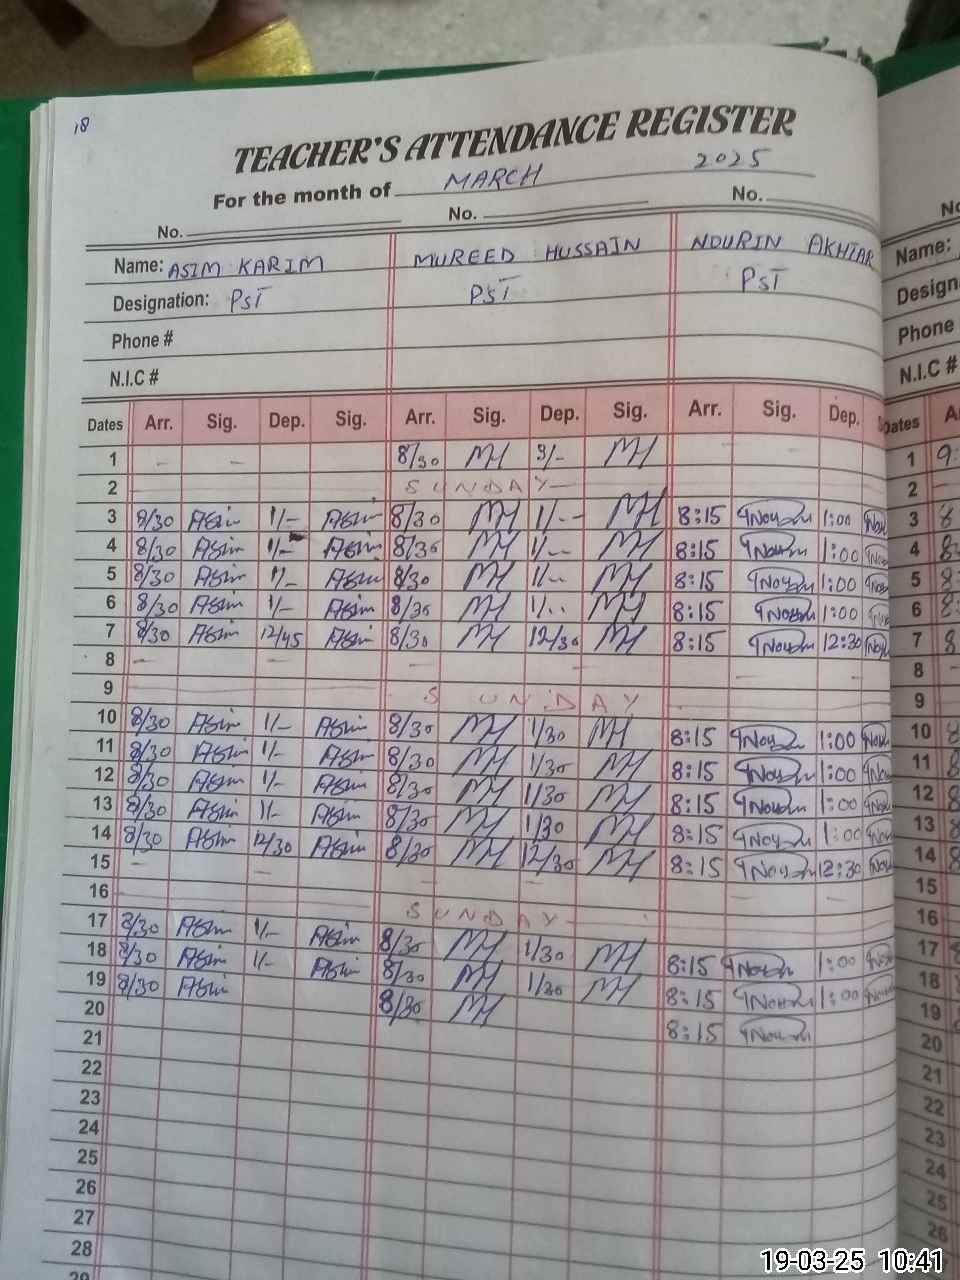 18
TEACHER'S ATTENDANCE REGISTER
For the month of MARCH 2025
No. No. No.
Name: ASIM KARIM MUREED HUSSAIN NOURIN AKHTAR Name:
Designation: PST PST PST Design
Phone # Phone
N.I.C # N.I.C #
Dates Arr. Sig. Dep. Sig. Arr. Sig. Dep. Sig. Arr. Sig. Dep. Dates
1 - - 8/30 MH 3/- MH - - 1
2 SUNDAY 2
3 8/30 Asim 1/- Asim 8/30 MH 1/-- MH 8:15 Nourin 1:00 3
4 8/30 Asim 1/- Asim 8/30 MH 1/-- MH 8:15 Nourin 1:00 4
5 8/30 Asim 1/- Asim 8/30 MH 1/-- MH 8:15 Nourin 1:00 5
6 8/30 Asim 1/- Asim 8/30 MH 1/-- MH 8:15 Nourin 1:00 6
7 8/30 Asim 12/45 Asim 8/30 MH 12/30 MH 8:15 Nourin 12:30 7
8 - - 8
9 SUNDAY 9
10 8/30 Asim 1/- Asim 8/30 MH 1/30 MH 8:15 Nourin 1:00 10
11 8/30 Asim 1/- Asim 8/30 MH 1/30 MH 8:15 Nourin 1:00 11
12 8/30 Asim 1/- Asim 8/30 MH 1/30 MH 8:15 Nourin 1:00 12
13 8/30 Asim 1/- Asim 8/30 MH 1/30 MH 8:15 Nourin 1:00 13
14 8/30 Asim 12/30 Asim 8/30 MH 12/30 MH 8:15 Nourin 12:30 14
15 - - - - - 15
16 SUNDAY 16
17 8/30 Asim 1/- Asim 8/30 MH 1/30 MH 8:15 Nourin 1:00 17
18 8/30 Asim 1/- Asim 8/30 MH 1/30 MH 8:15 Nourin 1:00 18
19 8/30 Asim 8/30 MH 8:15 Nourin 19
20 20
21 21
22 22
23 23
24 24
25 25
26 26
27
28
29
19-03-25 10:41